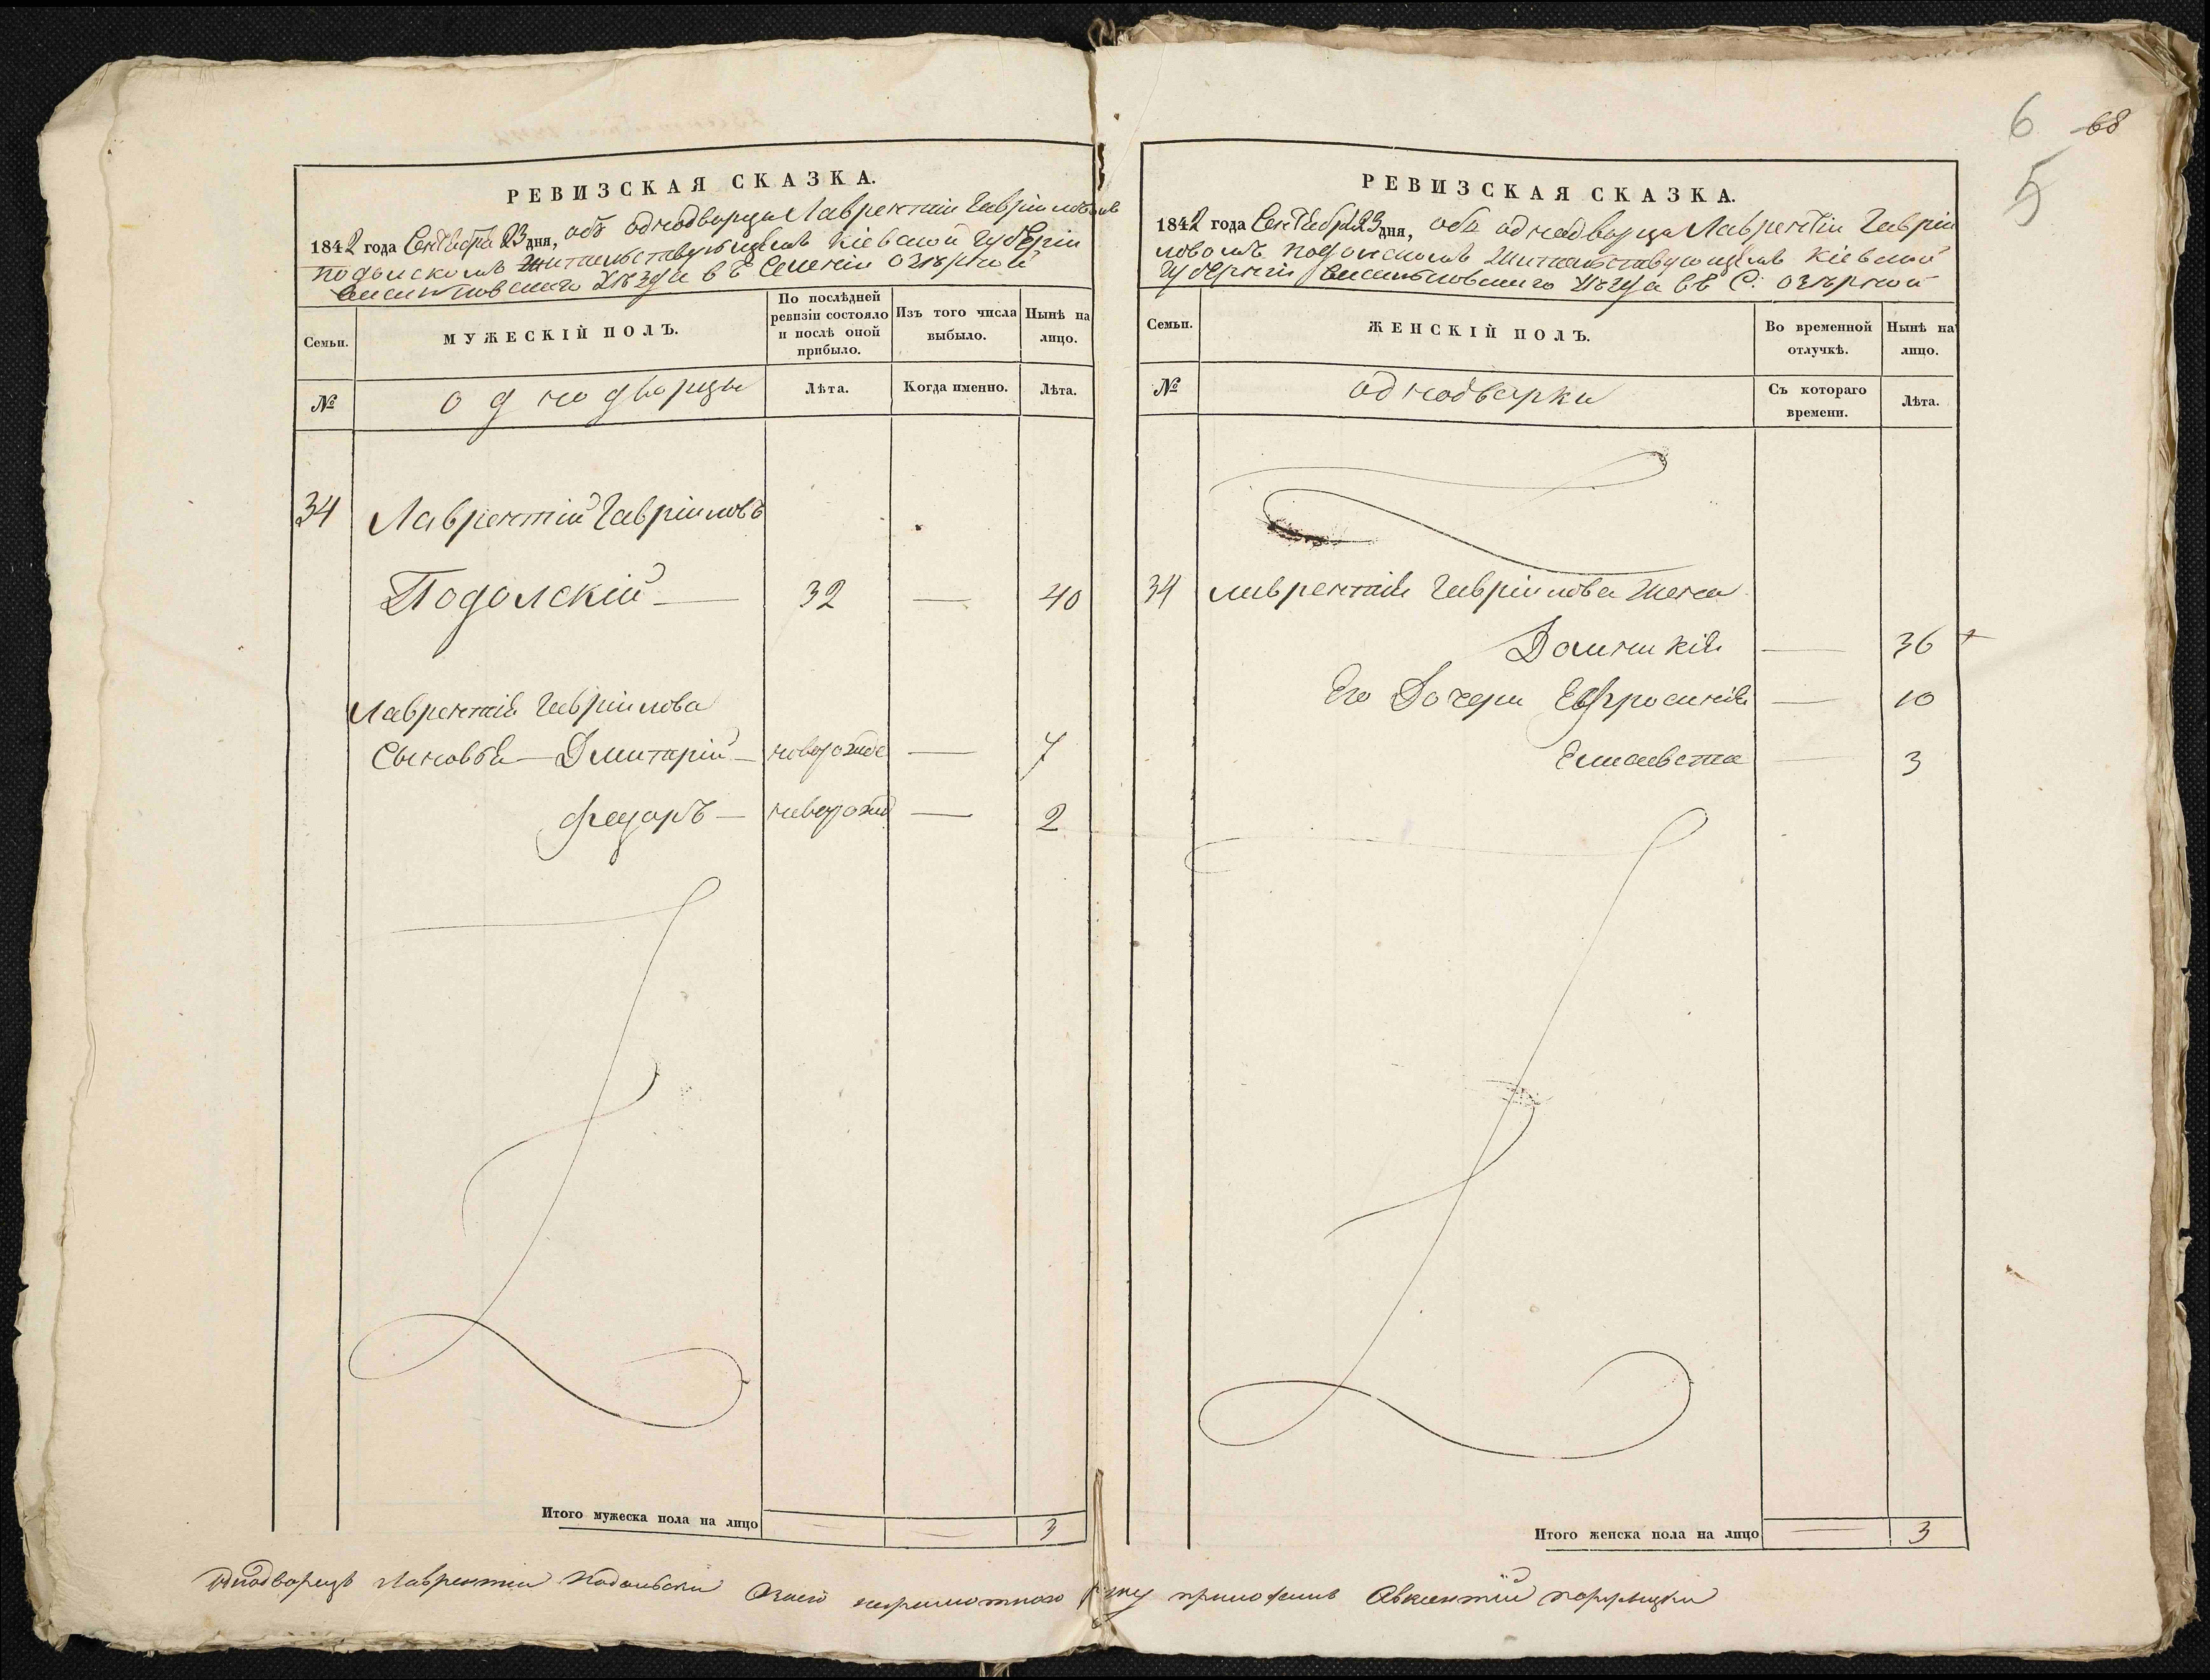 6 68
5
РЕВИЗСКАЯ СКАЗКА.
1842 года Сентября 23 дня, объ однодворце Лаврентии Гавриловомъ
Подольскомъ жительствующемъ Кіевской Губерніи
Васильковского Уѣзда въ Селеніи Озѣрной
Семьи.
МУЖЕСКІЙ ПОЛЪ.
По послѣдней ревизіи состояло и послѣ оной прибыло.
Изъ того числа выбыло.
Нынѣ на лицо.
№
однодворцы
Лѣта.
Когда именно.
Лѣта.
34 Лаврентій Гавріиловъ
Подолскій — 32 — 40
Лаврентія Гавріилова
Сыновья — Дмитрій — новорожде — 7
Федоръ — неворожд — 2
Итого мужеска пола на лицо — — 3
РЕВИЗСКАЯ СКАЗКА.
1842 года Сентября 23 дня, объ однодворце Лаврентіи Гавріи
ловомъ Подольскомъ жительствующемъ Кіевской
Губерніи Васильковского Уѣзда въ С: Озѣрной
Семьи.
ЖЕНСКІЙ ПОЛЪ.
Во временной отлучкѣ.
Нынѣ на лицо.
№
однодварки
Съ котораго времени.
Лѣта.
34 Лаврентія Гавріилова Жена
Домникія — 36
Его Дочери Ефросинія — 10
Елисавета — 3
Итого женска пола на лицо — 3
Однодворецъ Лаврентий Подольски Азанего неграмотного руку приложилъ Авксентий